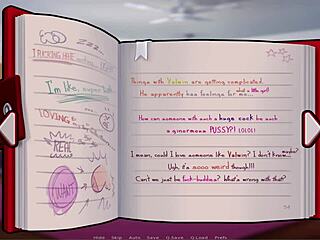 zzz...
I'm like, super
LOVING
REAL
WANT
Things with Valein are getting complicated.
He apparently has feelings for me...
what a little girl!
How can someone with such a huge cock be such
a ginormous PUSSY?! LOLOL!
I mean, could I love someone like Valein? I don't know...
maybe?
Ugh, it's sooo weird though!!!
Can't we just be fuck-buddies? What's wrong with that?
54
Hide Skip Auto Save Q.Save Q.Load Prefs